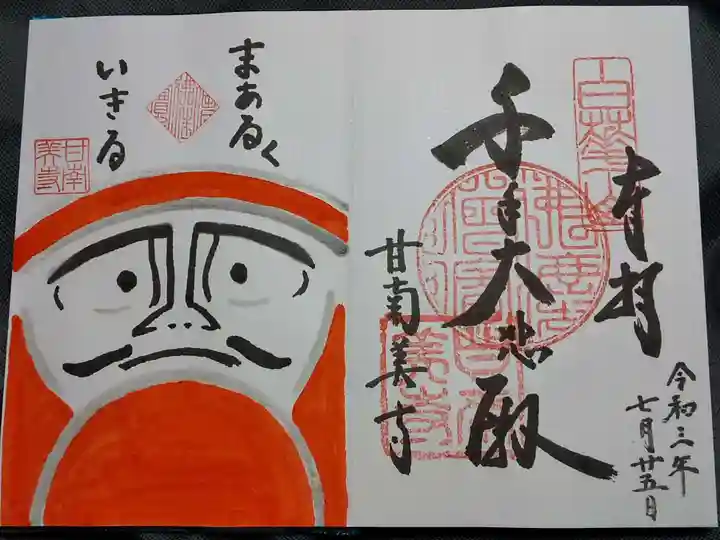 奉拝
令和三年
七月廿五日
千手大悲殿
甘南美寺
まあるく
いきる
甘南
美寺